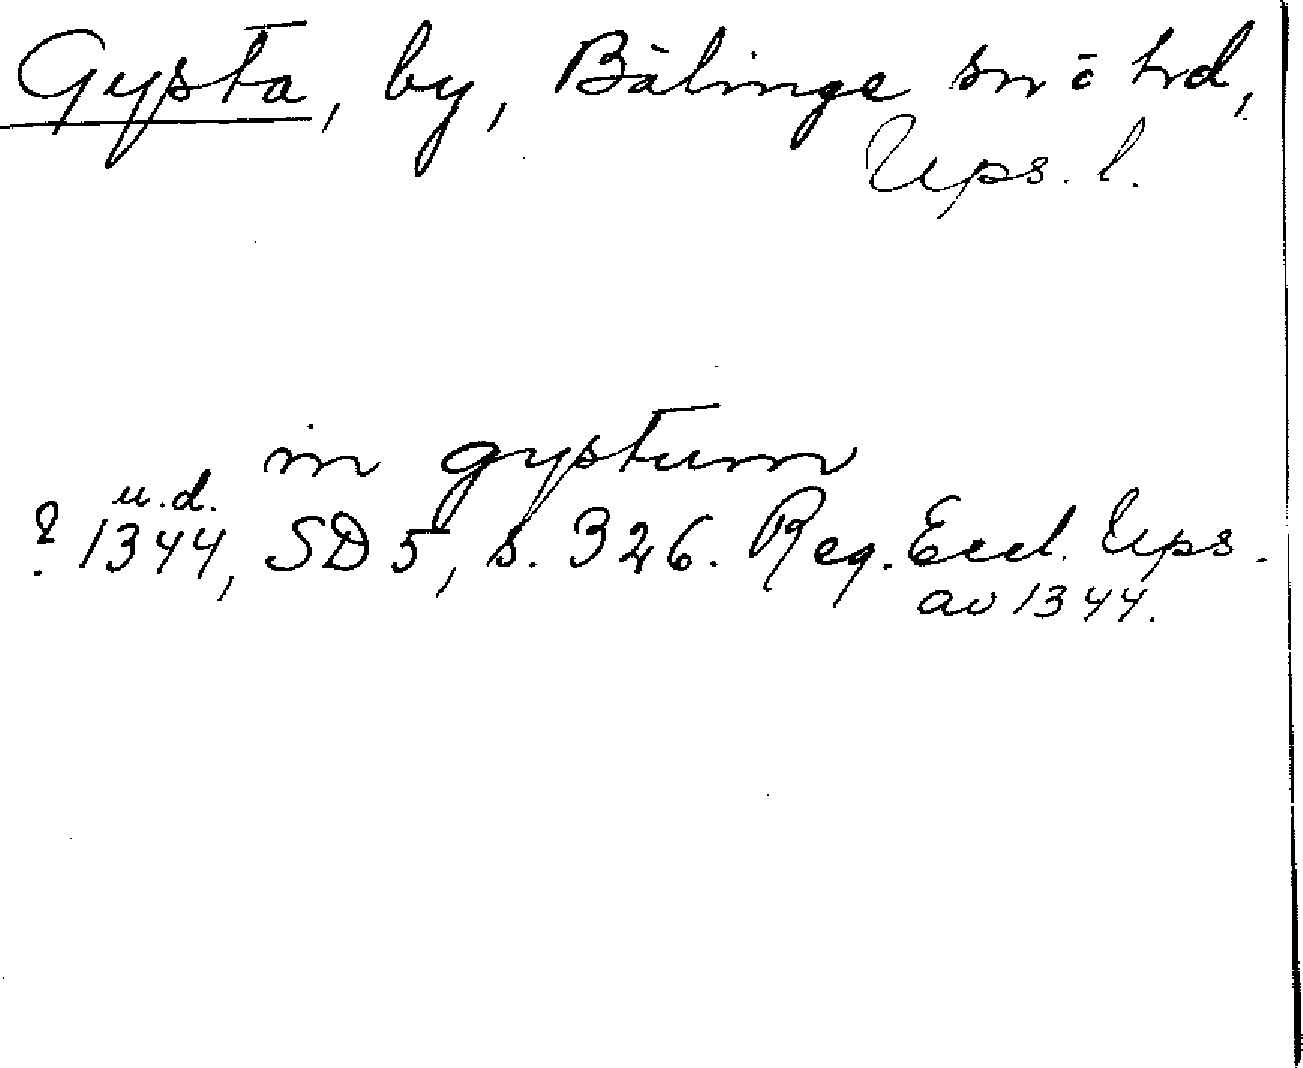 Gysta, by, Bälinge sn o hd,
Ups. l.
in gystum
u.d.
? 1344, SD 5, s. 326. Reg. Eccl. Ups.
av 1344.